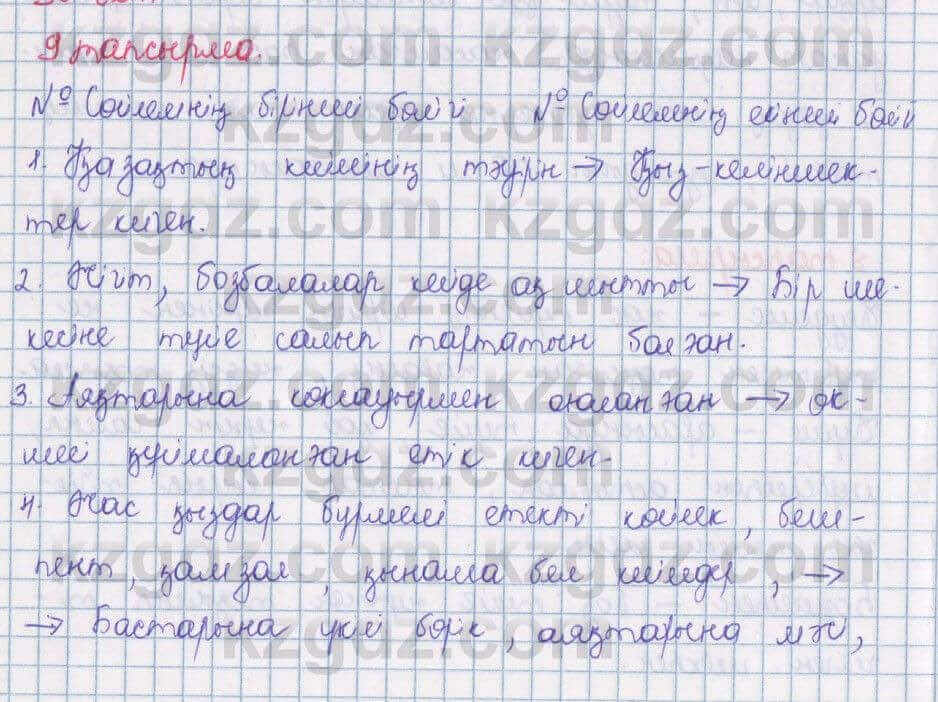 9 тапсырма.
№ Сөйлемнің бірінші бөлігі № Сөйлемнің екінші бөлігі
1. Қазақтың киімінің тәуірін → Қыз-келіншек-
тер киген.
2. Жігіт, бозбалалар кейде ақ шытты → Бір ше-
кесіне түре салып тартатын болған.
3. Аяқтарына көксауырмен оюланған → өк-
шесі күмістеленген етік киген.
4. Жас қыздар бүрмелі етекті көйлек, беш-
пент, қамзол, қынама бел киімдер, →
→ Бастарына үкілі бөрік, аяқтарына мәсі,